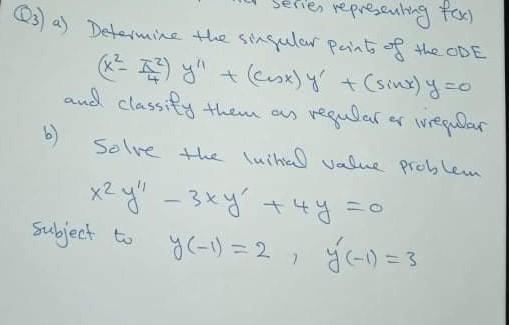 series representing f(x)
Q3) a) Determine the singular points of the ODE
(x² - π²/4) y'' + (cosx) y' + (sinx) y = 0
and classify them as regular or irregular
b) Solve the initial value problem
x² y'' - 3xy' + 4y = 0
subject to y(-1) = 2 , y'(-1) = 3